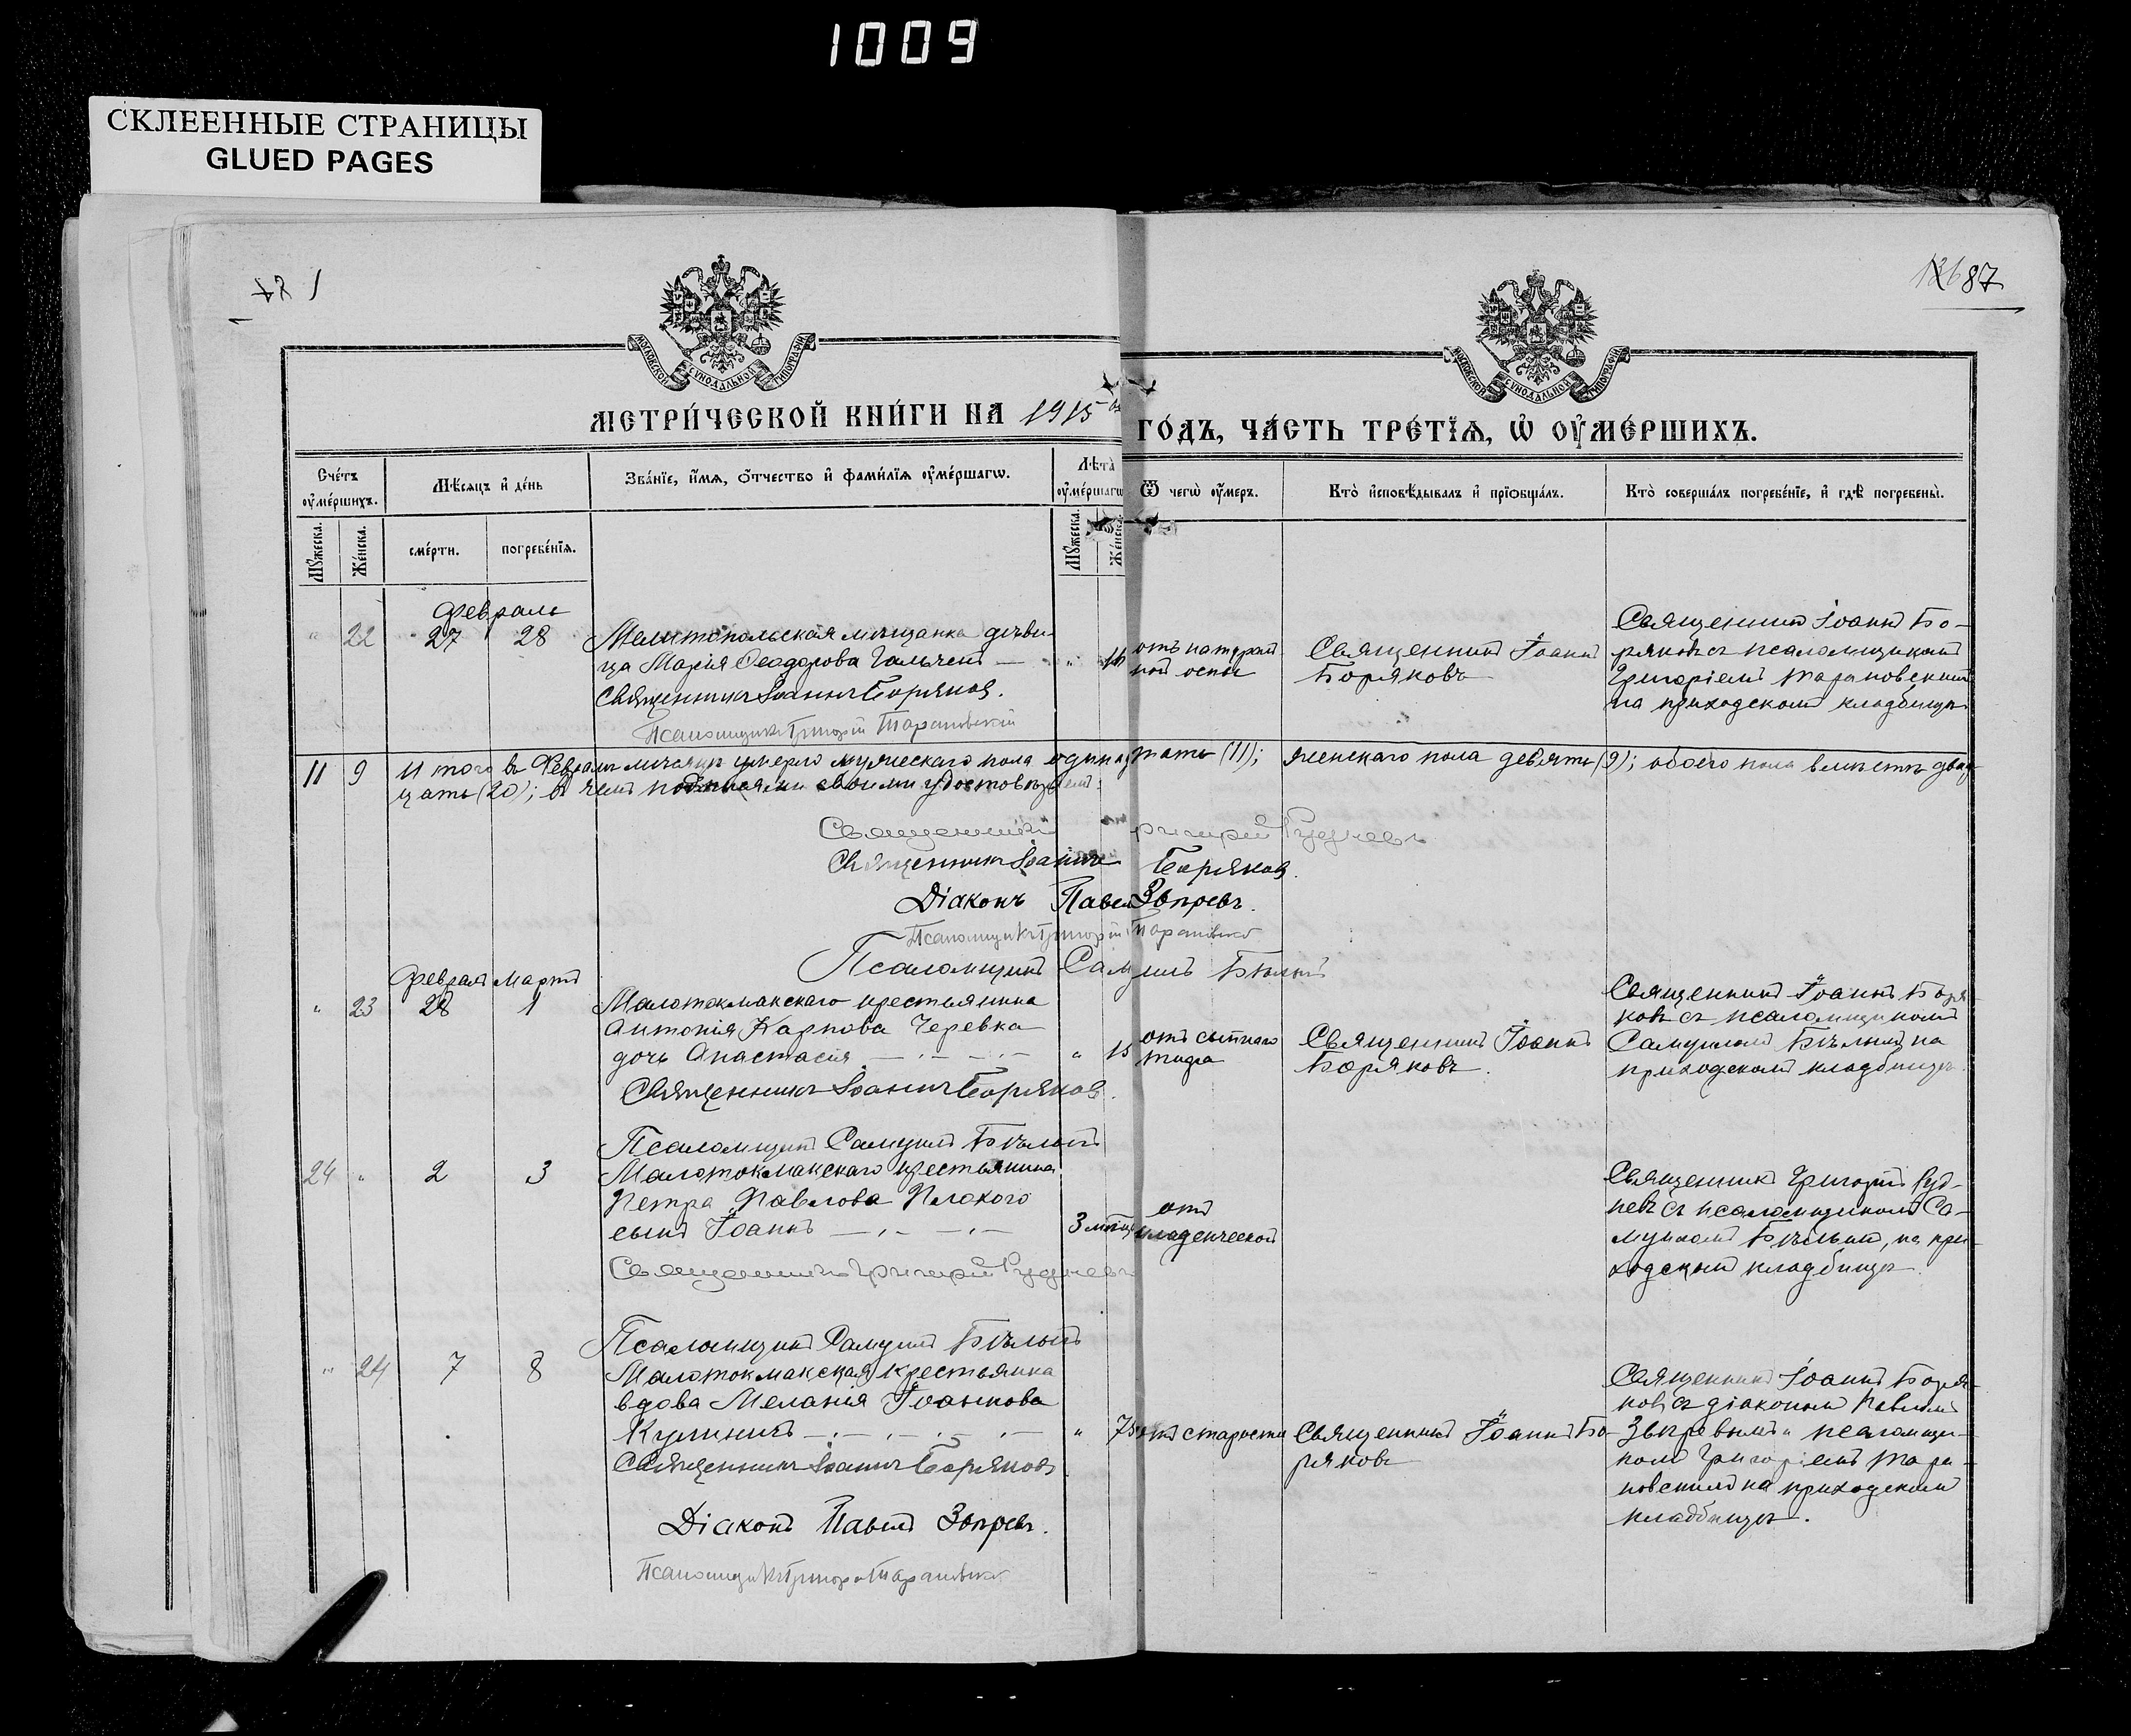 1009
СКЛЕЕННЫЕ СТРАНИЦЫ
GLUED PAGES
87
МОСКОВСКОЙ СѴНОДАЛЬНОЙ ТИПОГРАФІИ
МОСКОВСКОЙ СѴНОДАЛЬНОЙ ТИПОГРАФІИ
МЕТРИ́ЧЕСКОЙ КНИ́ГИ НА 1915 ГО́ДЪ, ЧА́СТЬ ТРЕ́ТІѦ, Ѡ ОУМЕ́РШИХЪ.
Сче́тъ оуме́ршихъ.
Мѣ́сяцъ и де́нь
Зва́ніе, и́мя, о́тчество и фами́лія оуме́ршагѡ.
Лѣта̀ оуме́ршагѡ
Ѿ чегѡ̀ оу́меръ.
Кто̀ исповѣ́дывалъ и пріобща́лъ.
Кто̀ соверша́лъ погребе́ніе, и гдѣ̀ погребены̀.
Му́жеска.
Же́нска.
сме́рти.
погребе́нія.
Му́жеска.
Же́нска.
Февраль
" 22 27 28
Мелитопольская мѣщанка дѣви-
ца Марія Ѳеодорова Гальченъ
Священникъ Іоаннъ Боряковъ.
Псаломщикъ Григорій Тарановскій
" 16
отъ натураль
ной оспы
Священникъ Іоаннъ
Боряковъ
Священникъ Іоаннъ Бо-
ряковъ съ псаломщикомъ
Григоріемъ Тарановскимъ
на приходскомъ кладбищѣ
11 9 Итого въ Февралѣ мѣсяцѣ умерло мужескаго пола одиннадцать (11); женскаго пола девять (9); обоего пола вмѣстѣ двад
цать (20); въ чемъ подписями своими удостовѣряемъ:
Священникъ Григорій Рудневъ
Священникъ Іоаннъ Боряковъ.
Діаконъ Павелъ Звѣревъ.
Псаломщикъ Григорій Тарановскій
Псаломщикъ Самуилъ Бѣлый
Февраль Мартъ
" 23 28 1
Малотокмакскаго крестьянина
Антонія Карпова Черевка
дочь Анастасія
Священникъ Іоаннъ Боряковъ.
Псаломщикъ Самуилъ Бѣлый
" 15
отъ сыпнаго
тифа
Священникъ Іоаннъ
Боряковъ.
Священникъ Іоаннъ Боря-
ковъ съ псаломщикомъ
Самуиломъ Бѣлымъ на
приходскомъ кладбищѣ.
24 " 2 3
Малотокмакскаго крестьянина
Петра Павлова Плохого
сынъ Іоаннъ
Священникъ Григорій Рудневъ
Псаломщикъ Самуилъ Бѣлый
отъ
младенческой
Священникъ Григорій Руд-
невъ съ псаломщикомъ Са-
муиломъ Бѣлымъ, на при-
ходскомъ кладбищѣ.
" 24 7 8
Малотокмакская крестьянка
вдова Меланія Іоаннова
Кулиничъ
Священникъ Іоаннъ Боряковъ
Діаконъ Павелъ Звѣревъ.
Псаломщикъ Григорій Тарановскій
"
отъ старости
Священникъ Іоаннъ Бо-
ряковъ
Священникъ Іоаннъ Боря-
ковъ съ діакономъ Павломъ
Звѣревымъ и псаломщи-
комъ Григоріемъ Тара-
новскимъ на приходскомъ
кладбищѣ.